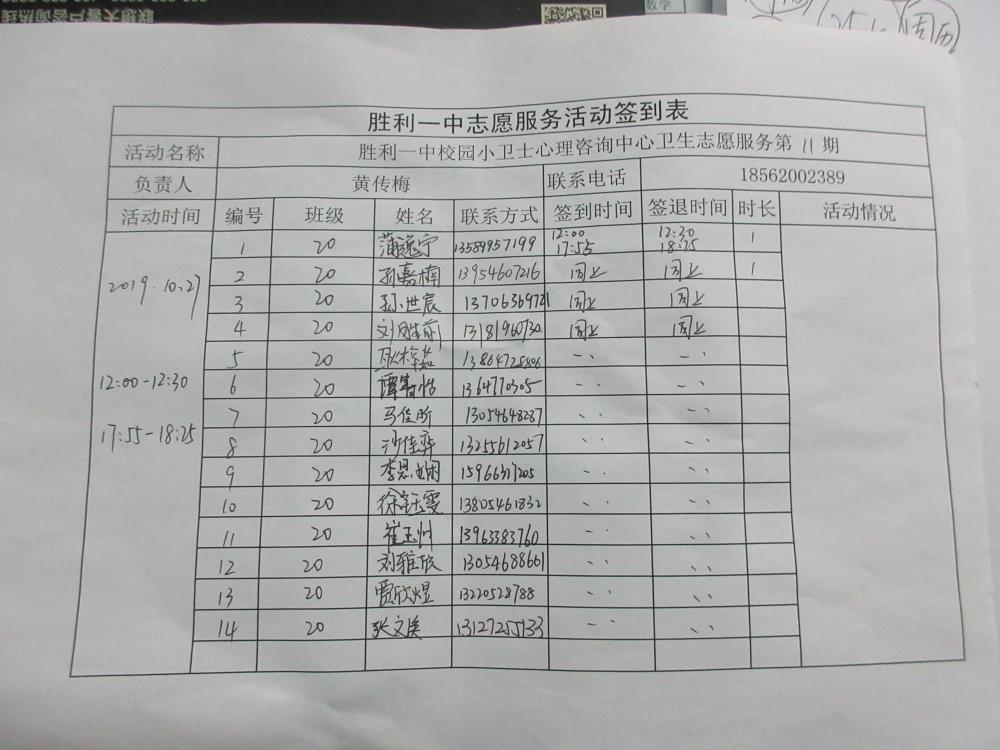 数学
周历
胜利一中志愿服务活动签到表
活动名称 胜利一中校园小卫士心理咨询中心卫生志愿服务第 11 期
负责人 黄传梅 联系电话 18562002389
活动时间 编号 班级 姓名 联系方式 签到时间 签退时间 时长 活动情况
2019.10.27
12:00-12:30
17:55-18:25
1 20 蒲逸宁 13589957199 12:00 17:55 12:30 18:25 1
2 20 孙嘉楠 13954607216 同上 同上 1
3 20 孙世宸 13706369721 同上 同上
4 20 刘胜前 13181960730 同上 同上
5 20 13864728806
6 20 1364770305
7 20 马佳昕 13054648287
8 20 沙佳弈 13255612057
9 20 李思娴 15966317205
10 20 徐钰雯 13805461832
11 20 崔玉州 13963383760
12 20 刘雅欣 13054688661
13 20 贾欣煜 13220528788
14 20 张文 13127255733